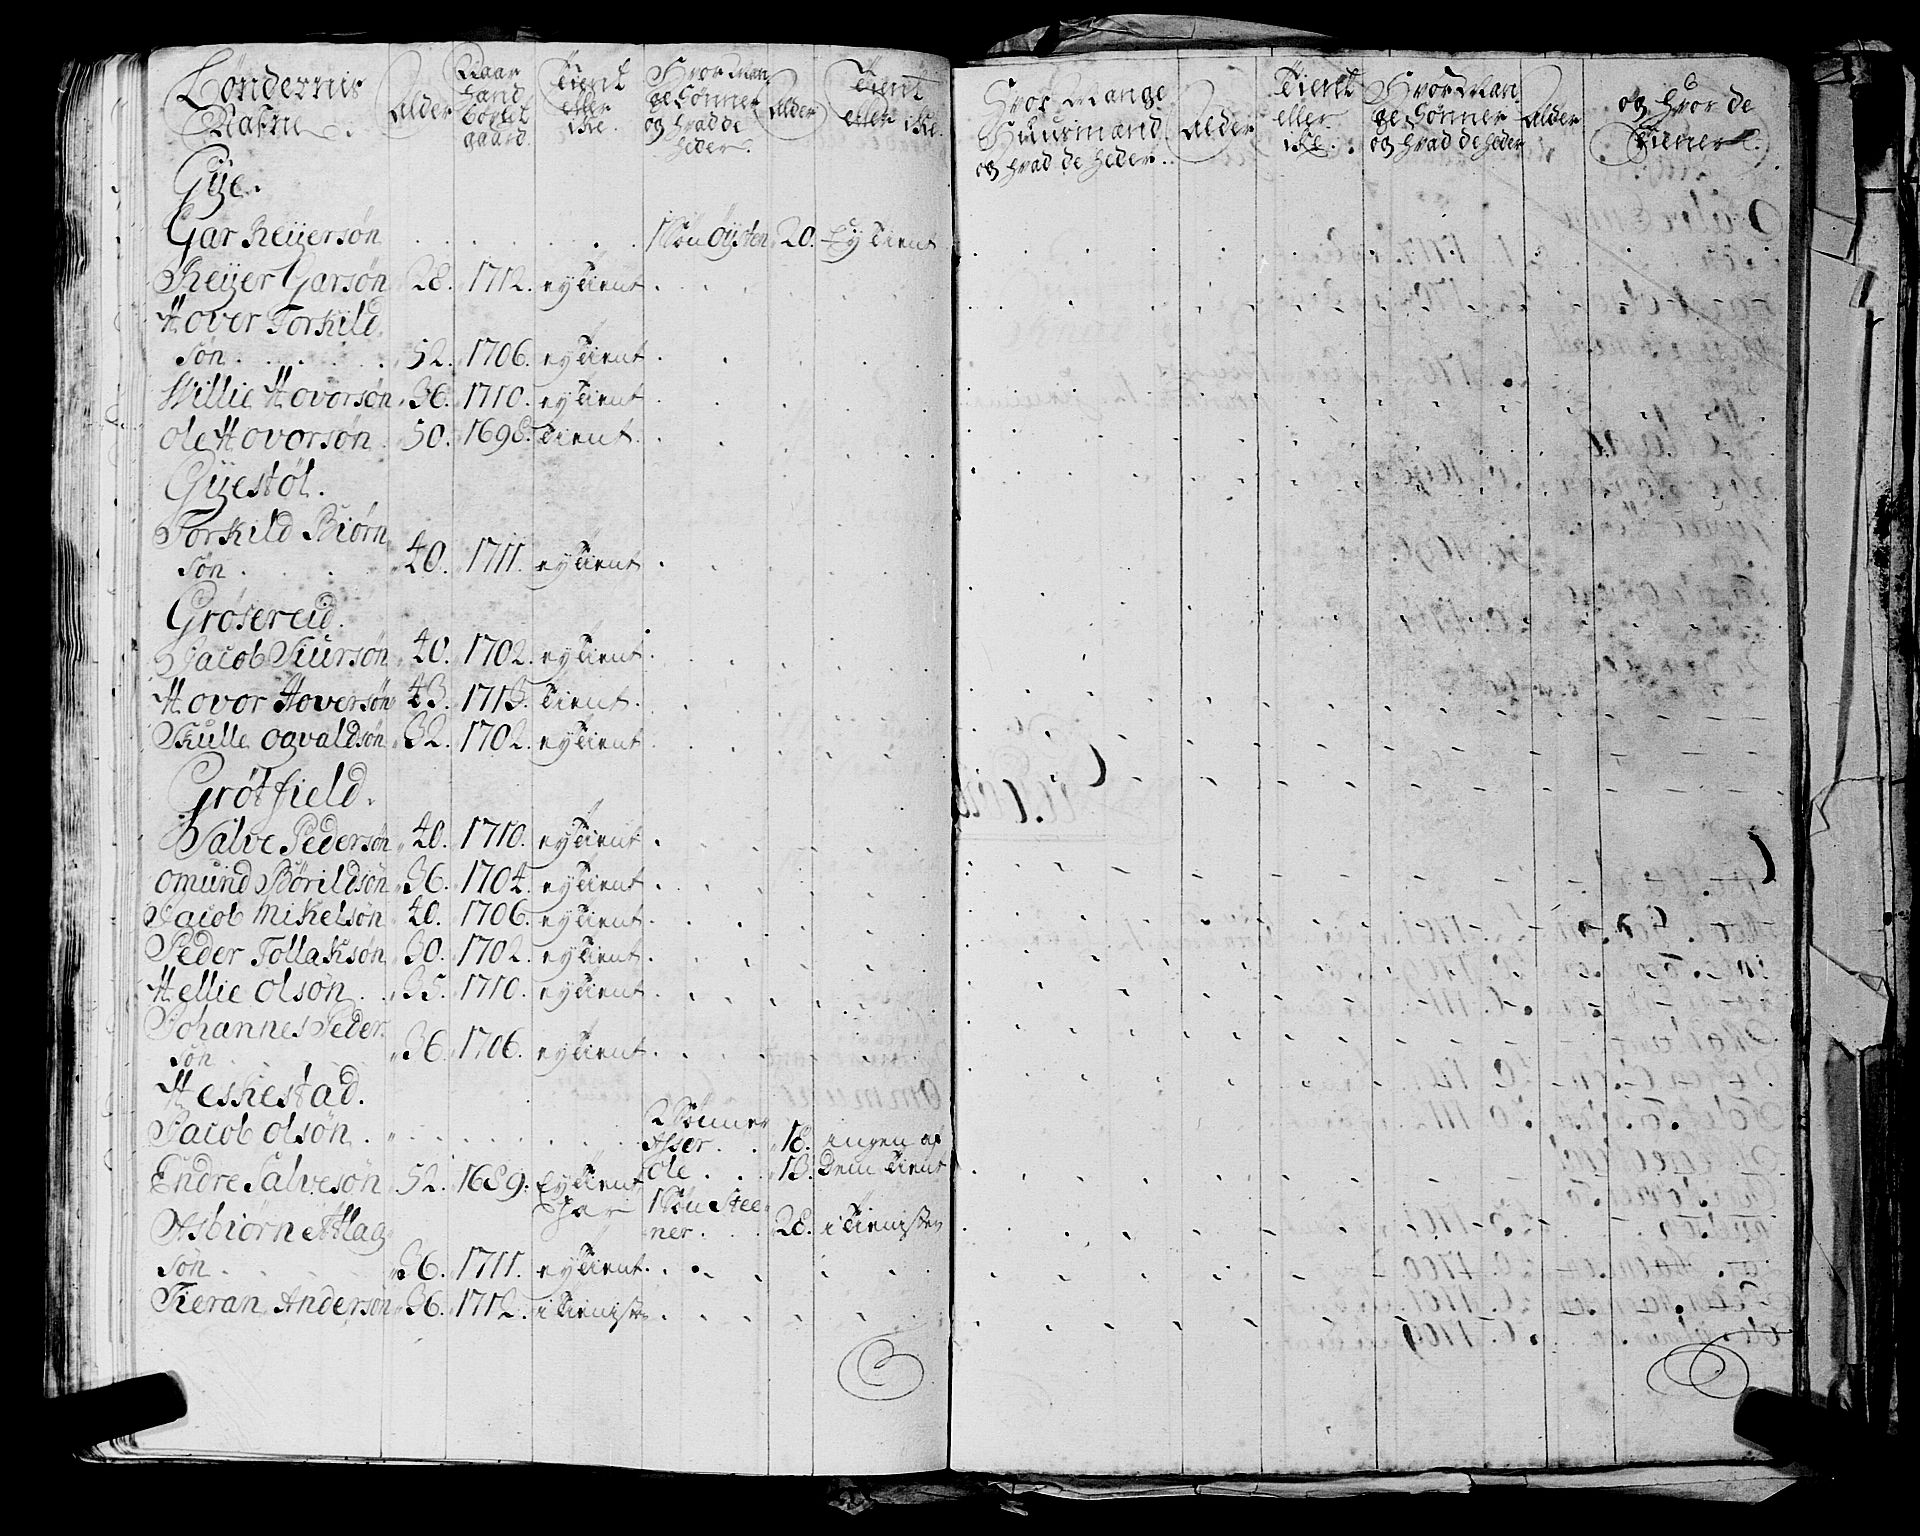 Bøndernis
Nafne
Alder
Naar
hand
bortet
gaard.
Tient
eller
ike.
Hvor Man
ge Sønner
og hvad de
heder.
Alder
Tient
eller ike.
Gye.
Gar Reyersøn . . . . 1 Søn Øysten 20. Ey Tient
Reyer Garsøn 28. 1712. ey Tient
Hover Torkild
søn 52. 1706. ey Tient
Willie Hovorsøn 36. 1710. ey Tient
ole Hovorsøn 50. 1698. Tient
Gyestøl.
Torkild Biørn
søn 40. 1711. ey Tient
Grosereid.
Jacob Siursøn 40. 1702. ey Tient
Hovor Hoversøn 43. 1713. Tient
Skulle ogvaldsøn 32. 1702. ey Tient
Grøtfield.
Salve Pedersøn 40. 1710. ey Tient
omund Børildsøn 36. 1704. ey Tient
Jacob Mikelsøn 40. 1706. ey Tient
Peder Tollaksøn 30. 1702. ey Tient
Hellie olsøn 35. 1710. ey Tient
Johannes Peder
søn 36. 1706. ey Tient
Heskestad.
Jacob olsøn . 2 Sønner
Asser 18. ingen af
ole 13. Dem Tient
Endre Salvesøn 52. 1689. Ey Tient
har
1 Søn Stee
ner 28. i Tienisten
Asbiørn Aslag
søn 36. 1711. ey Tient
Tieran Andersøn 36. 1712. i Tienist
Hvor Mange
Huusmænd
og hvad de heder.
Alder
Tient
eller
ike.
Hvor Man
ge Sønner
og hvad de heder
Alder
og hvor de
Tiener.